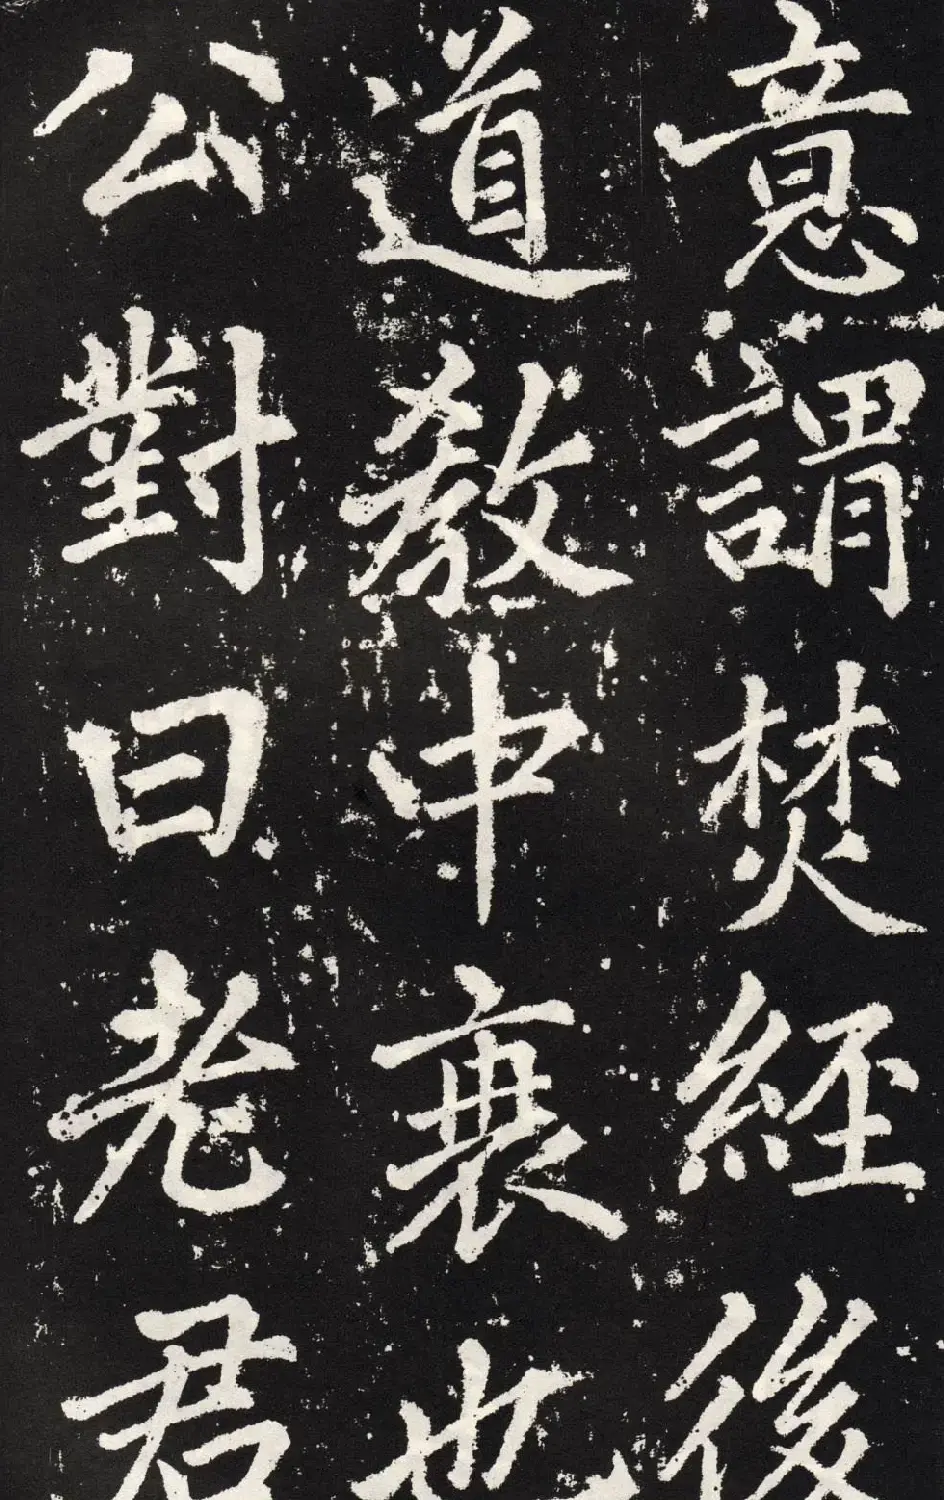 意謂焚經後
道教中衰也
公對曰老君